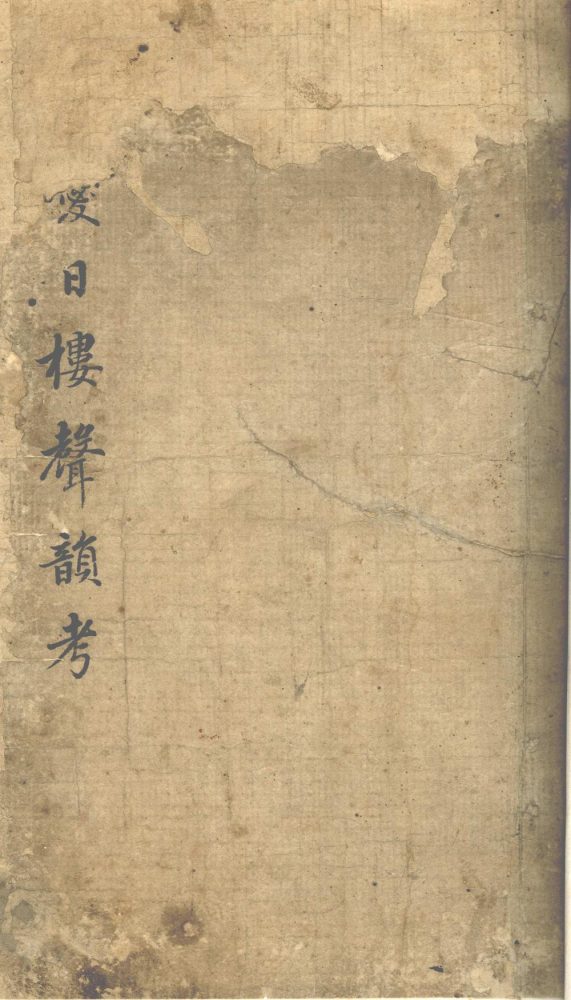 愛日樓聲韻考